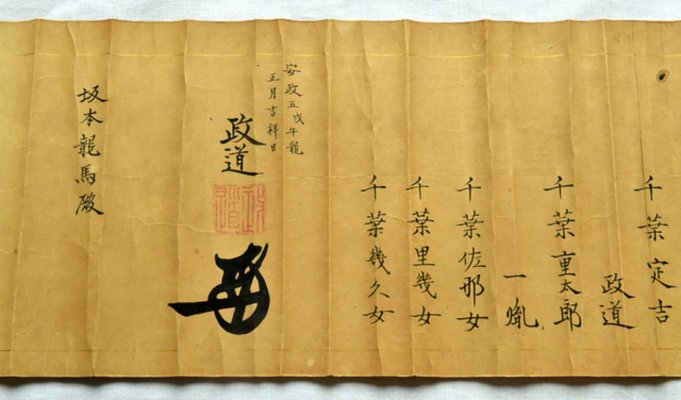 千葉定吉
政道
千葉重太郎
一胤
千葉佐那女
千葉里幾女
千葉幾久女
安政五戊午龍
正月吉祥日
政道
政道
坂本龍馬殿